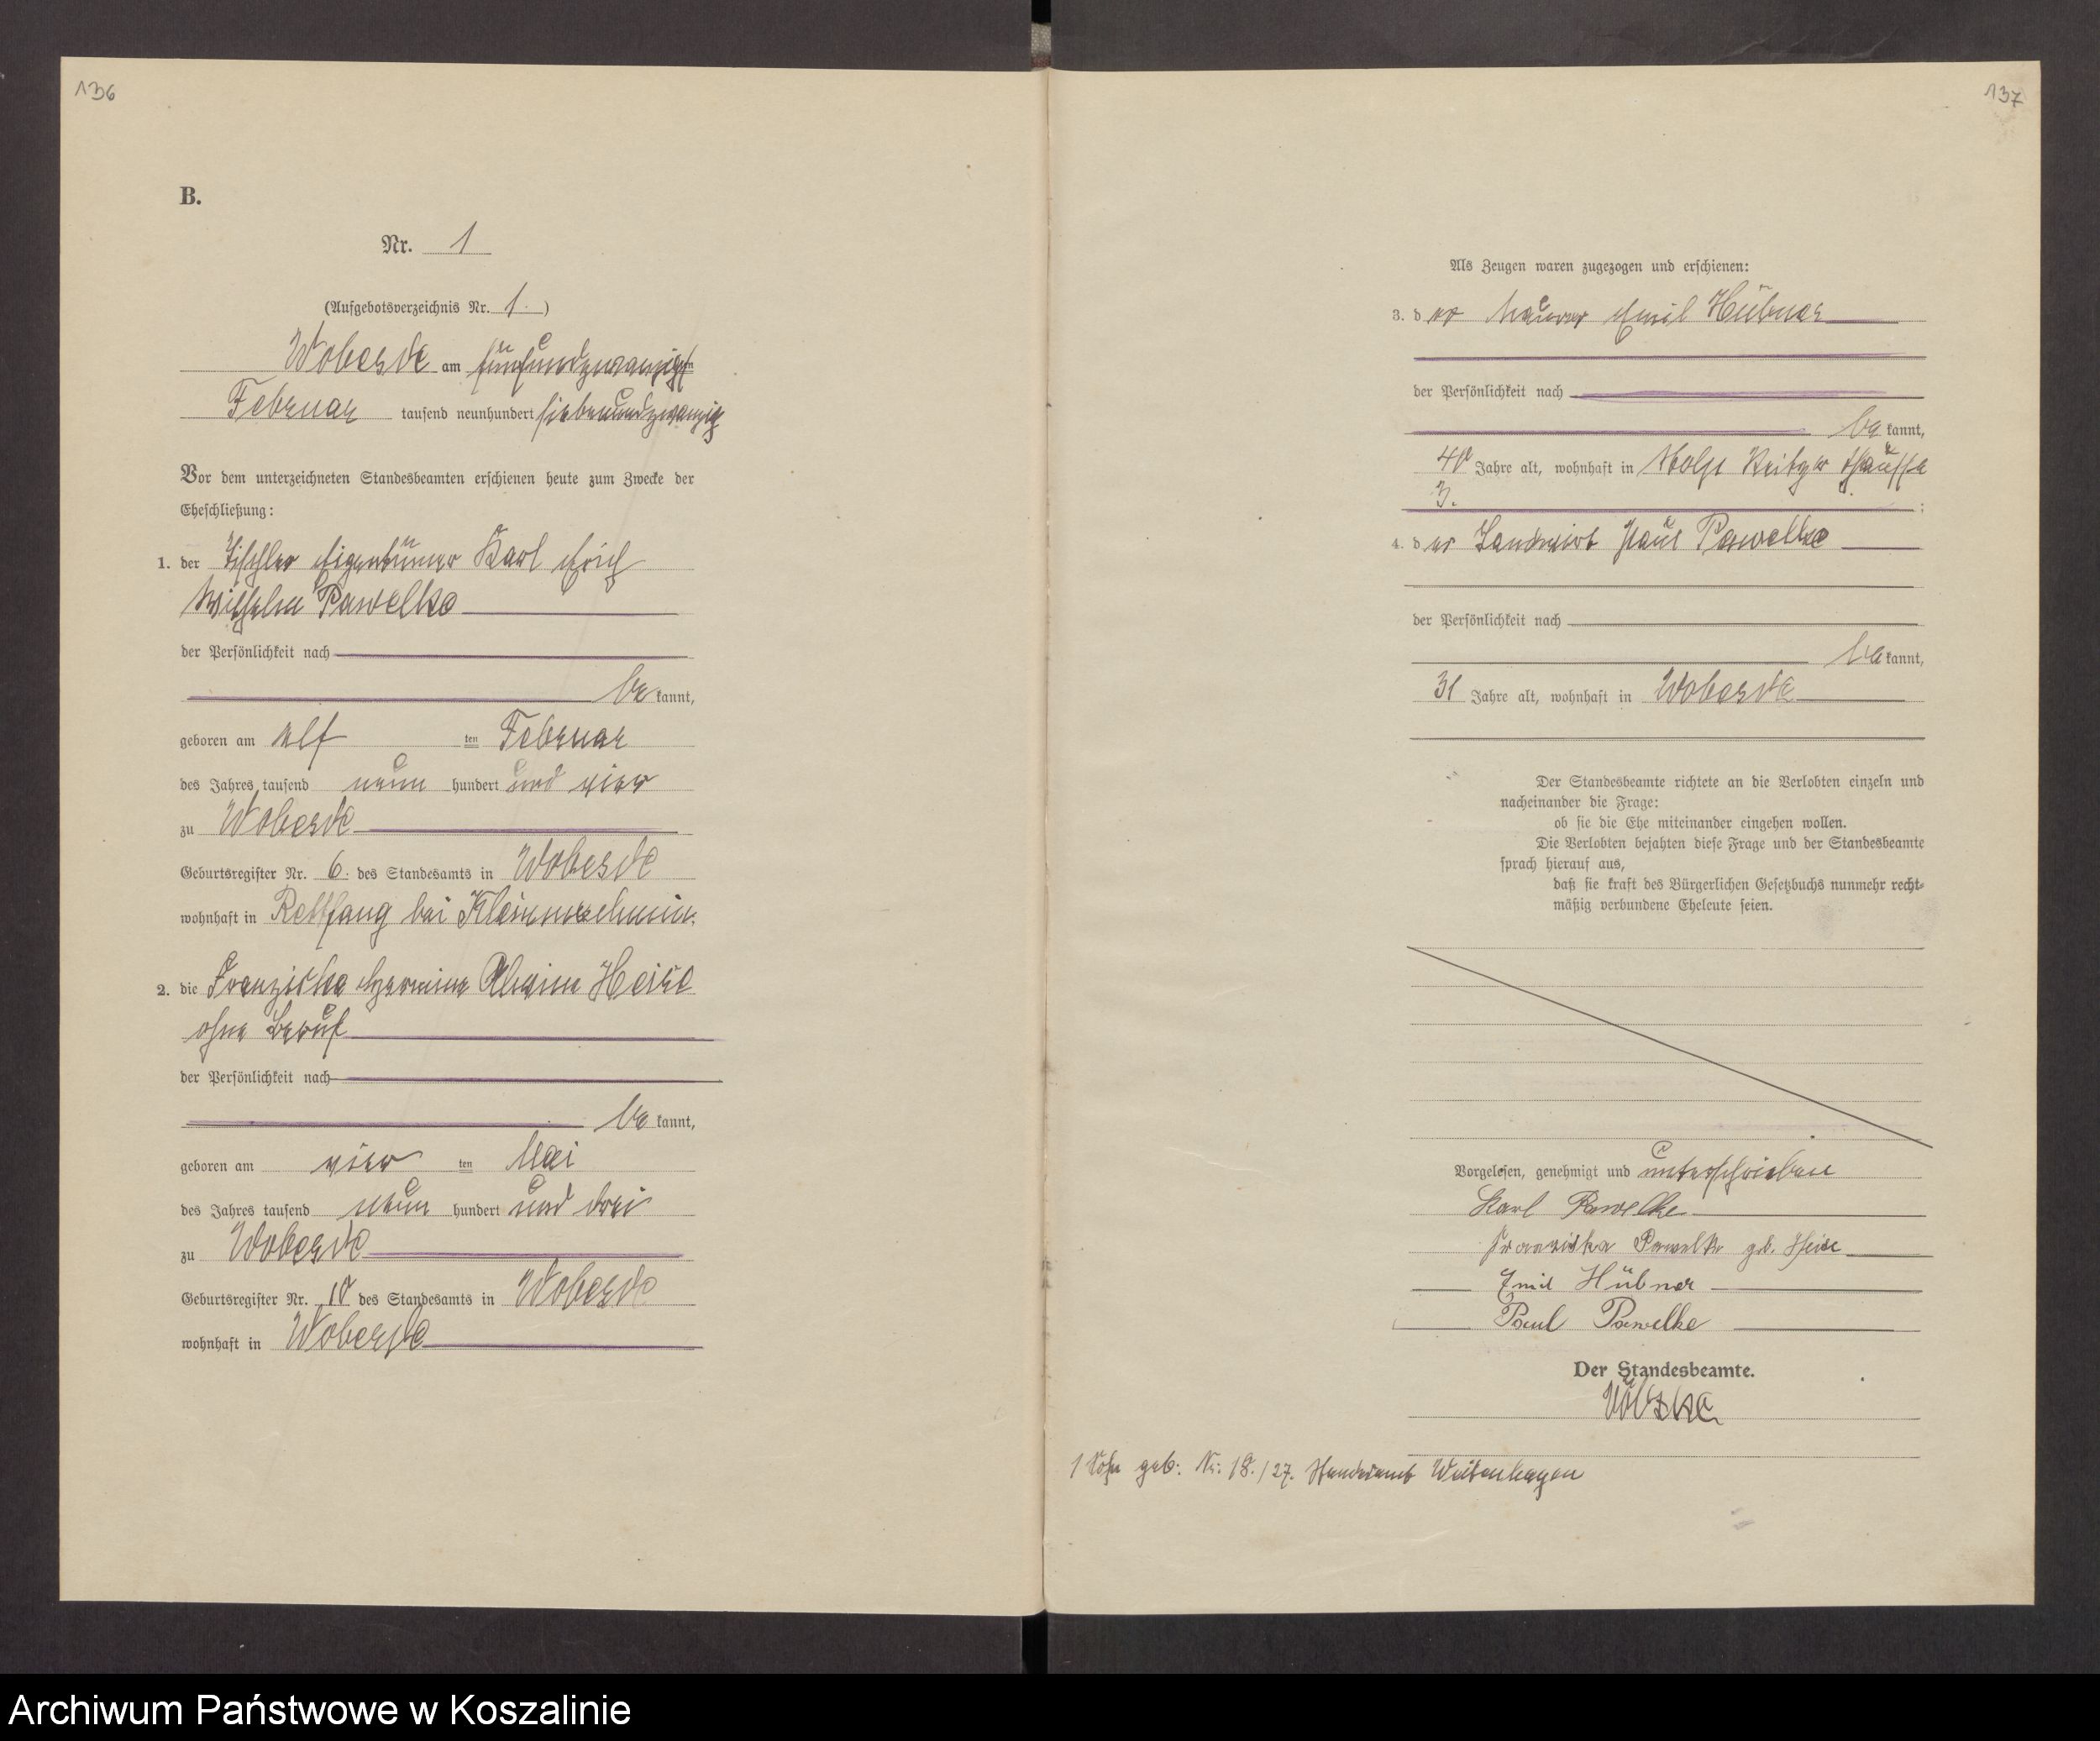 136
B.
Nr. 1
(Aufgebotsverzeichnis Nr. 1.)
Wobesde am fünfundzwanzigsten
Februar tausend neunhundert siebenundzwanzig
Vor dem unterzeichneten Standesbeamten erschienen heute zum Zwecke der
Eheschließung:
1. der Tischler Eigentümer Karl Erich
Wilhelm Pawelke
der Persönlichkeit nach
bekannt,
geboren am elf ten Februar
des Jahres tausend neun hundert und vier
zu Wobesde
Geburtsregister Nr. 6. des Standesamts in Wobesde
wohnhaft in bei
2. die Franziska Hermine Heise
ohne Beruf
der Persönlichkeit nach
bekannt,
geboren am vier ten Mai
des Jahres tausend neun hundert und drei
zu Wobesde
Geburtsregister Nr. 10 des Standesamts in Wobesde
wohnhaft in Wobesde
137
Als Zeugen waren zugezogen und erschienen:
3. der Maurer Emil Hübner
der Persönlichkeit nach
bekannt,
40 Jahre alt, wohnhaft in Stolp
3. ;
4. der Landwirt Paul Pawelke
der Persönlichkeit nach
bekannt,
31 Jahre alt, wohnhaft in Wobesde
Der Standesbeamte richtete an die Verlobten einzeln und
nacheinander die Frage:
ob sie die Ehe miteinander eingehen wollen.
Die Verlobten bejahten diese Frage und der Standesbeamte
sprach hierauf aus,
daß sie kraft des Bürgerlichen Gesetzbuchs nunmehr recht-
mäßig verbundene Eheleute seien.
Vorgelesen, genehmigt und unterschrieben
Karl Pawelke
Franziska Pawelke geb. Heise
Emil Hübner
Paul Pawelke
Der Standesbeamte.
Völzke
1 Sohn geb: Nr. 18./27. Standesamt Weitenhagen
Archiwum Państwowe w Koszalinie